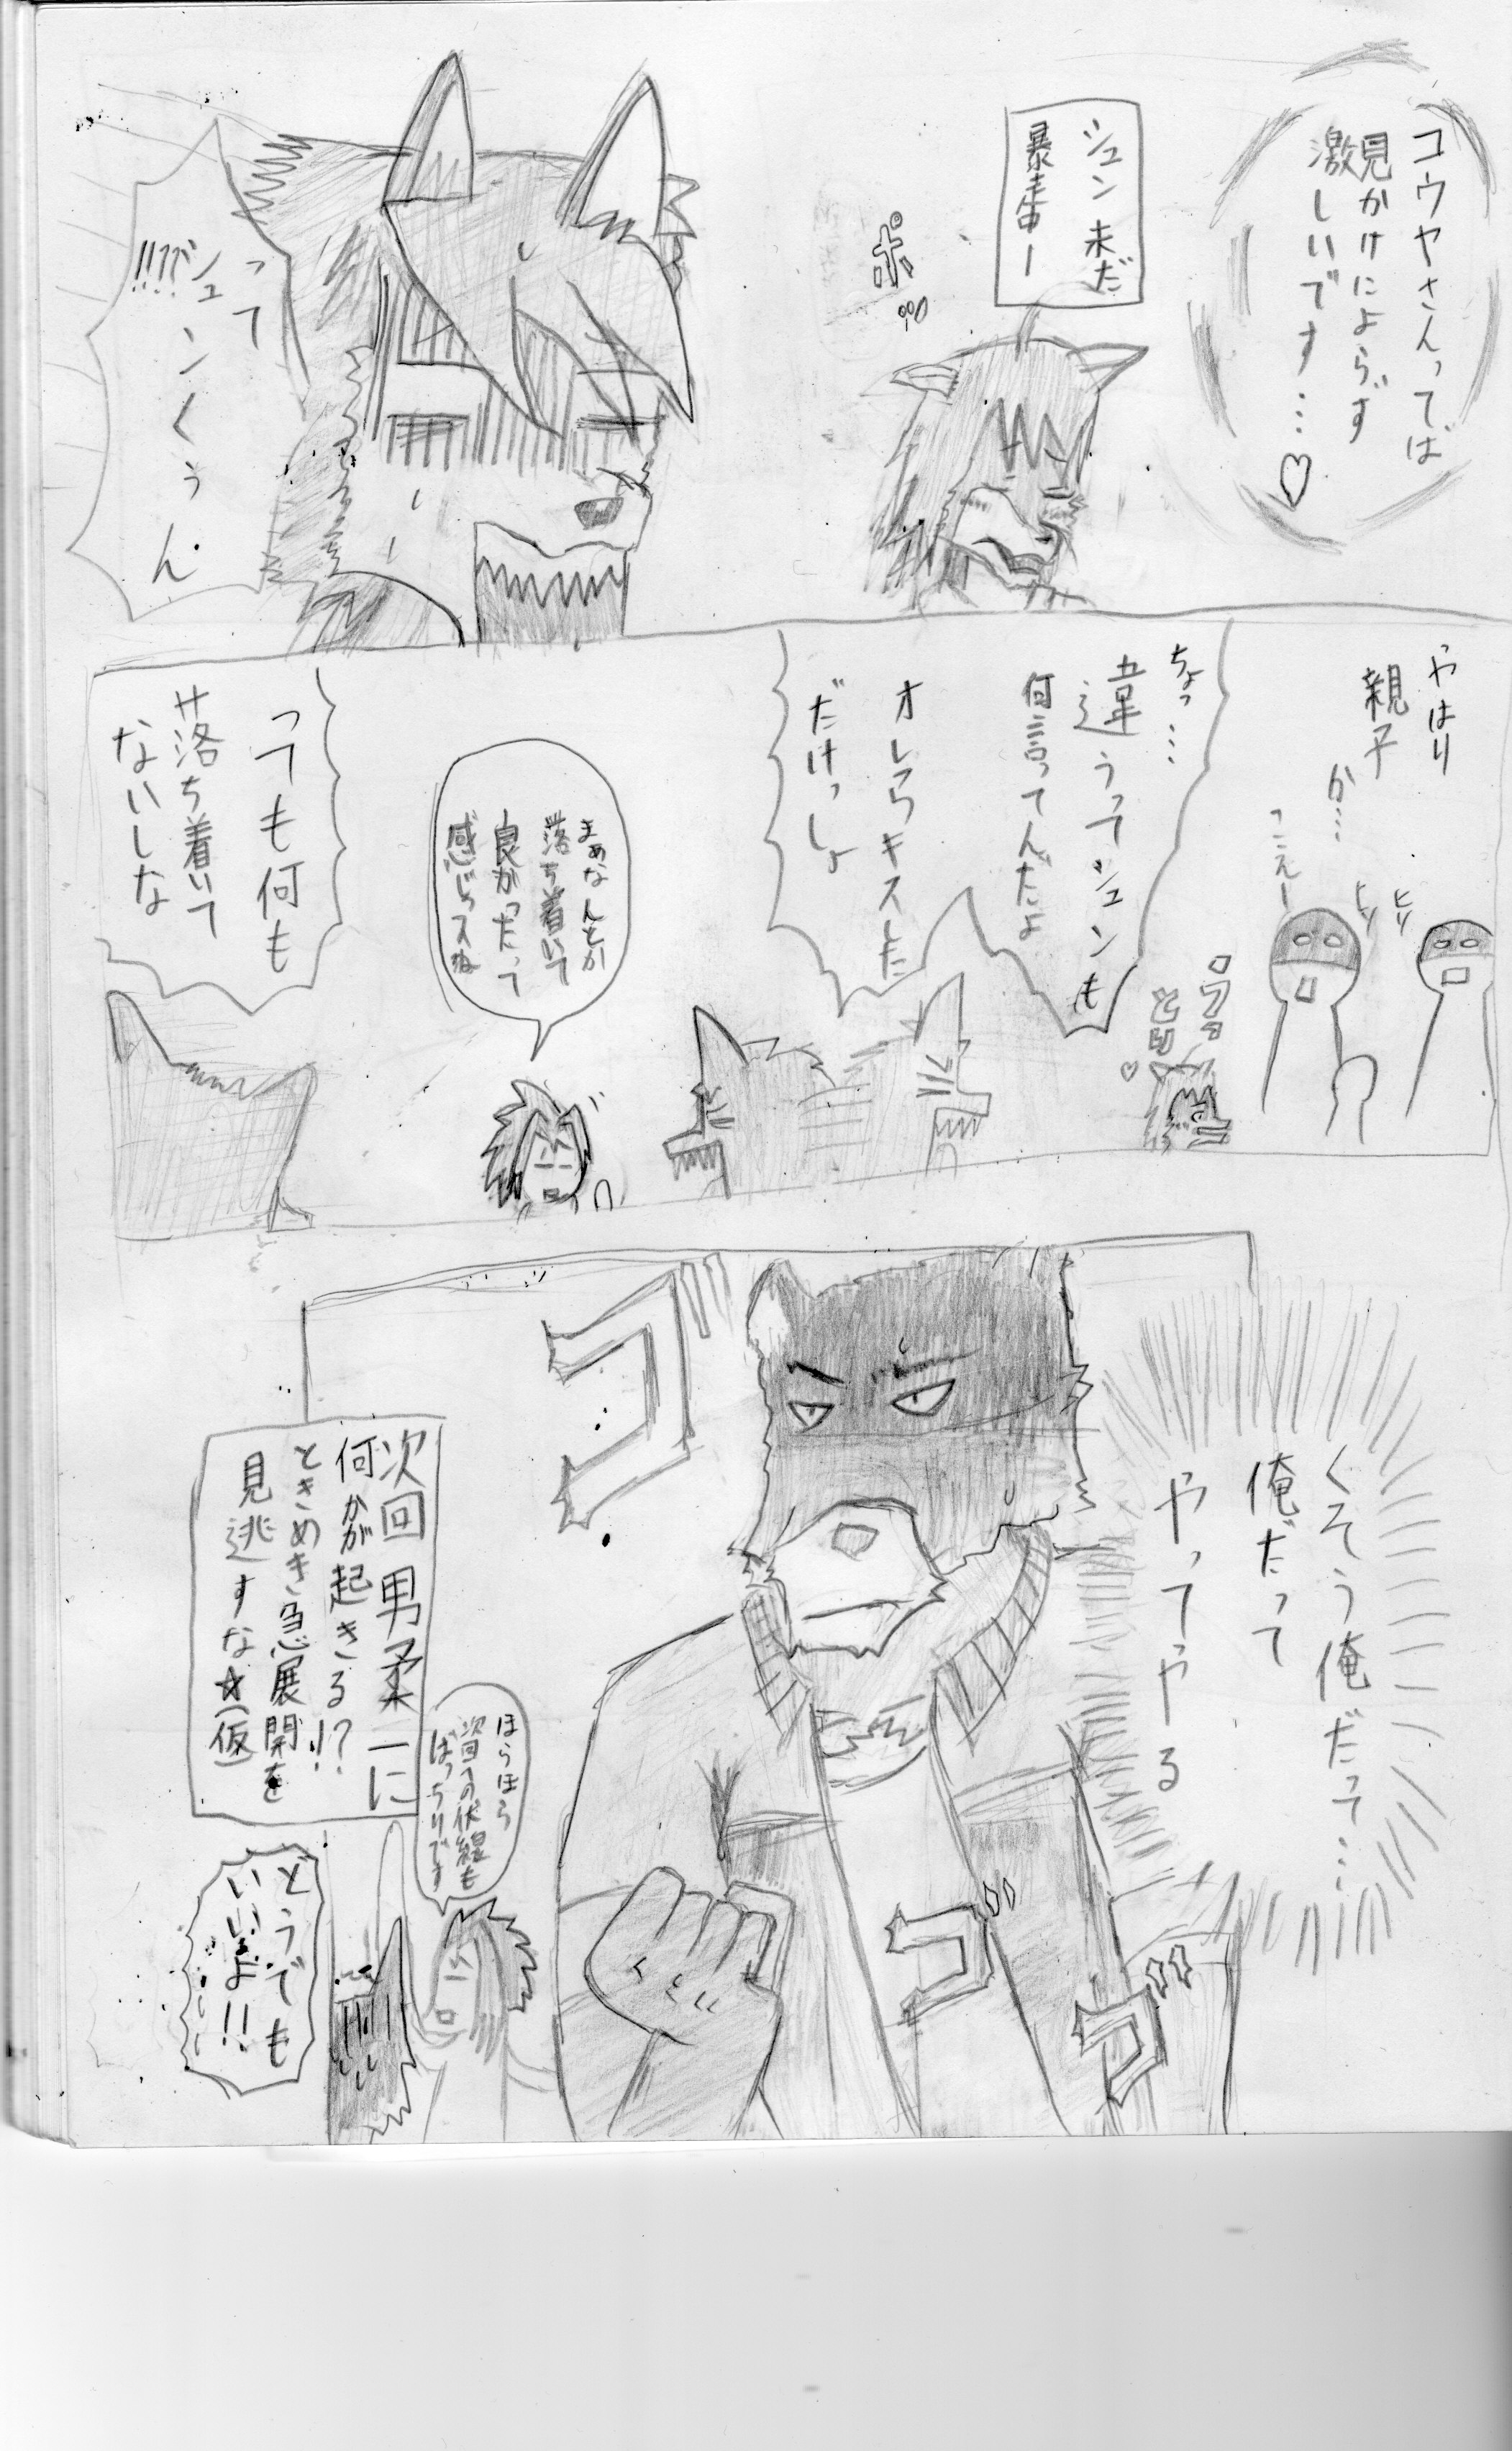 コウヤさんってば
見かけによらず
激しいです…♡
シュン未だ
暴走中ー
ポ
って
シュンくぅん
!!??
やはり
親子
か…
こえー
ヒソ
ヒソ
ちょっ…
違うってシュンも
何言ってんだよ
オレらキスした
だけっしょ
まぁなんとか
落ち着いて
良かったって
感じっスね
っても何も
落ち着いて
ないしな
くそう俺だって…
俺だって
やってやる
ゴ
ゴ
ゴ
次回 男柔一に
何かが起きる!?
ときめき急展開を
見逃すな☆(仮)
ほらほら
次回への伏線も
ばっちりです
どうでも
いいよ!!